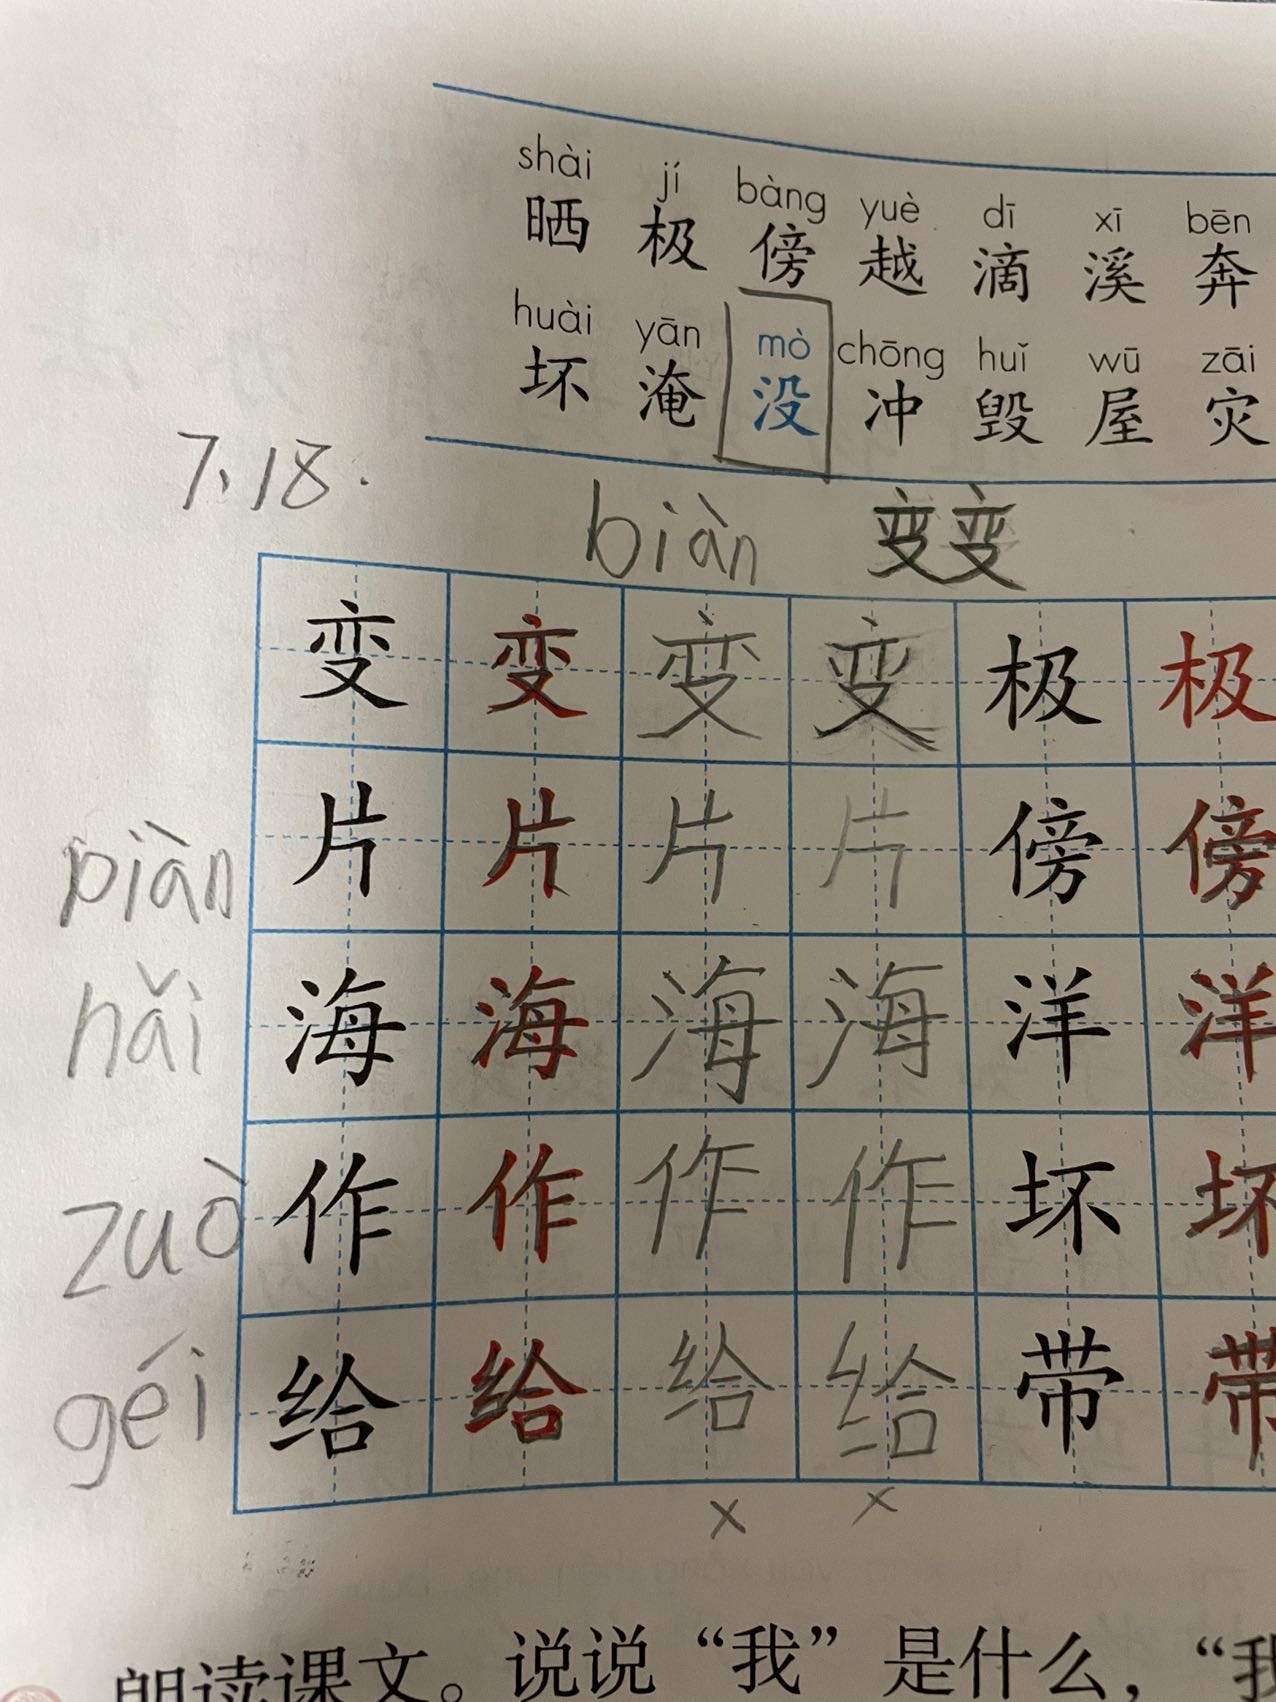 shài jí bàng yuè dī xī bēn
晒 极 傍 越 滴 溪 奔
huài yān mò chōng huǐ wū zāi
坏 淹 没 冲 毁 屋 灾
7、18.
biàn 变变
变 变 变 变 极 极
piàn 片 片 片 片 傍 傍
hǎi 海 海 海 海 洋 洋
zuò 作 作 作 作 坏 坏
géi 给 给 给 给 带 带
× ×
朗读课文。说说“我”是什么，“我